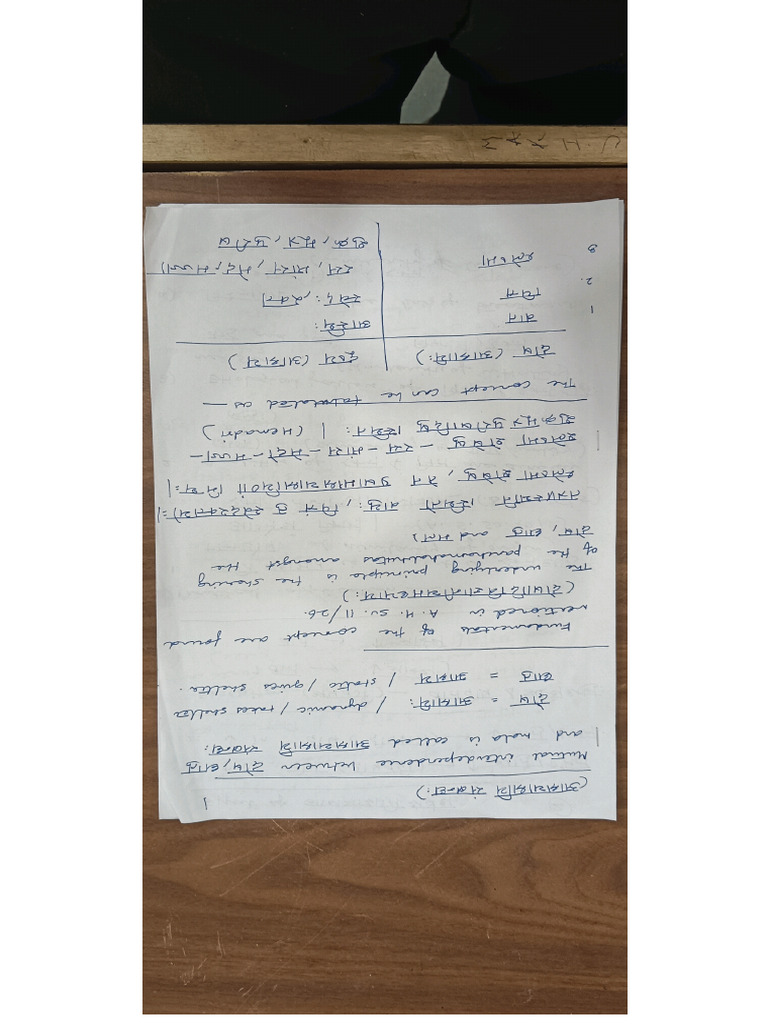 1
(आश्रयाश्रयि संबन्धः)
Mutual interdependence between दोष, धातु
and mala is called आश्रयाश्रयि संबन्धः
दोष = आश्रयिः / dynamic / takes shelter
धातु = आश्रय / static / gives shelter.
Fundamentals of the concept are found
mentioned in A.H. Su. 11/26.
(दोषादिविज्ञानीयमध्यायः)
The underlying principle is the sharing
of the panchamahabhutas amongst the
दोष, धातु and मल)
तत्रास्थनि स्थितो वायुः, पित्तं तु स्वेदरक्तयोः।
श्लेष्मा शेषेषु, तेनैषामाश्रयाश्रयिणां मिथः।
श्लेष्मा शेषेषु - रस - मांस - मेदो - मज्जा -
शुक्र मूत्र पुरीषादिषु स्थितः। (Hemadri)
The concept can be tabulated as —
दोष (आश्रयिः) दूष्य (आश्रय)
1 वात अस्थि:
2. पित्त स्वेद:, रक्त
3 श्लेष्मा रस, मांस, मेद, मज्जा
शुक्र, मूत्र, पुरीष
M A X H . U